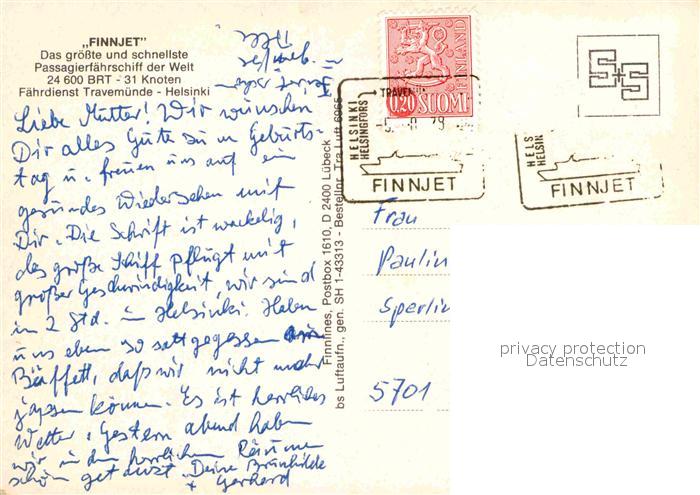 „FINNJET"
Das größte und schnellste
Passagierfährschiff der Welt
24 600 BRT - 31 Knoten
Fährdienst Travemünde - Helsinki
Liebe Mutter! Wir wünschen
Dir alles Gute zum Geburts-
tag u. freuen uns auf ein
gesundes Wiedersehen mit
Dir. Die Schrift ist wackelig,
das große Schiff pflügt mit
großer Geschwindigkeit, wir sind
in 2 Std. in Helsinki. Haben
uns eben so satt gegessen am
Büffett, daß wir nicht mehr
japsen können. Es ist herrliches
Wetter. Gestern abend haben
wir in den herrlichen Räumen
schön getanzt. Deine Brunhilde
+ Gerhard
Finnlines, Postbox 1610, D 2400 Lübeck
bs Luftaufn., gen. SH 1-43313 - Bestellnr. Tra Luft 6965
0,20 SUOMI
FINLAND
HELSINKI
HELSINGFORS
TRAVEM
79
FINNJET
HELS
HELSIN
FINNJET
S+S
Frau
Paulin
Sperlin
5701
privacy protection
Datenschutz